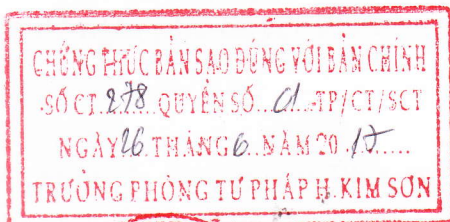 CHỨNG THỰC BẢN SAO ĐÚNG VỚI BẢN CHÍNH
SỐ CT 278 QUYỂN SỐ 01 TP/CT/SCT
NGÀY 26 THÁNG 6 NĂM 20 17
TRƯỞNG PHÒNG TƯ PHÁP H. KIM SƠN